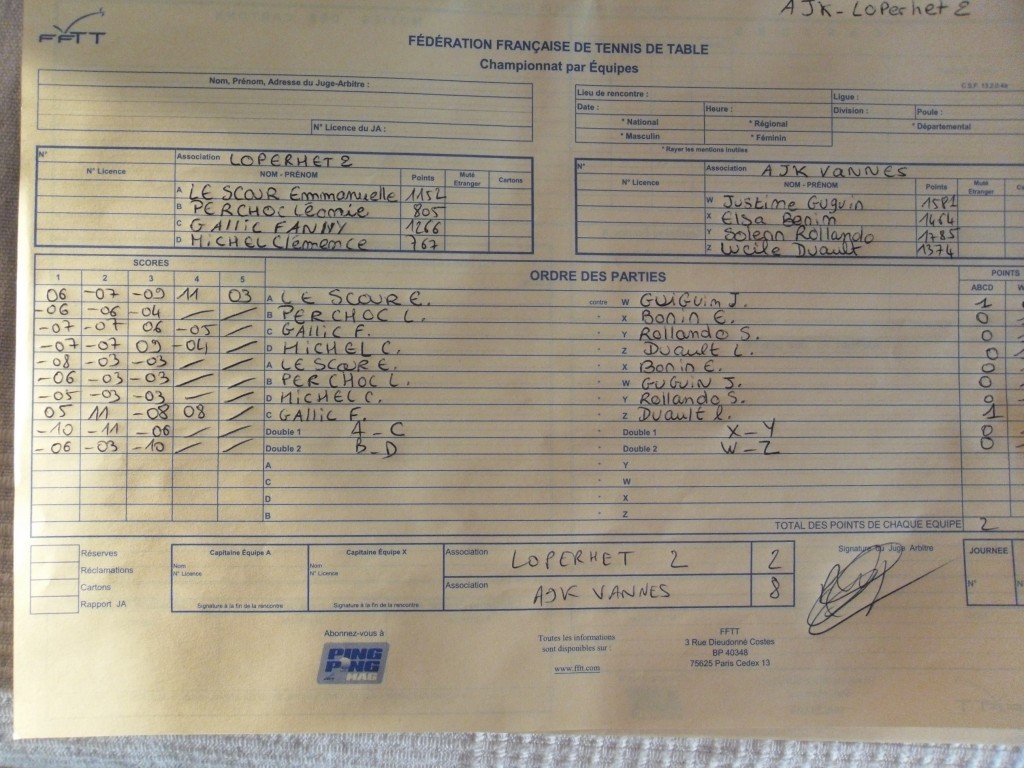 AJK-LOPERHET 2
FFTT
FÉDÉRATION FRANÇAISE DE TENNIS DE TABLE
Championnat par Équipes
C.S.F.
Nom, Prénom, Adresse du Juge-Arbitre :
N° Licence du JA :
Lieu de rencontre : Ligue :
Date : Heure : Division : Poule :
* National * Régional * Départemental
* Masculin * Féminin
* Rayer les mentions inutiles
N° Association LOPERHET 2
N° Licence NOM - PRÉNOM Points Muté Etranger Cartons
A LE SCOUR Emmanuelle 1152
B PERCHOC Léonie 805
C GALLIC FANNY 1266
D MICHEL Clémence 767
N° Association AJK VANNES
N° Licence NOM - PRÉNOM Points Muté Etranger
W Justine Guguin 1581
X Elsa Bonin 1464
Y Solenn Rollando 1785
Z Lucile Duault 1374
SCORES ORDRE DES PARTIES POINTS
1 2 3 4 5 ABCD
06 -07 -09 11 03 A LE SCOUR E. contre W GUIGUIN J. 1
-06 -06 -04 B PERCHOC L. X Bonin E. 0
-07 -07 06 -05 C GALLIC F. Y Rollando S. 0
-07 -07 09 -04 D MICHEL C. Z Duault L. 0
-08 -03 -03 A LE SCOUR E. X Bonin E. 0
-06 -03 -03 B PERCHOC L. W GUGUIN J. 0
-05 -03 -03 D MICHEL C. Y Rollando S. 0
05 11 -08 08 C GALLIC F. Z Duault L. 1
-10 -11 -06 Double 1 A-C Double 1 X-Y 0
-06 -03 -10 Double 2 B-D Double 2 W-Z 0
A Y
C W
D X
B Z
TOTAL DES POINTS DE CHAQUE EQUIPE 2
Réserves
Réclamations
Cartons
Rapport JA
Capitaine Équipe A
Nom
N° Licence
Signature à la fin de la rencontre
Capitaine Équipe X
Nom
N° Licence
Signature à la fin de la rencontre
Association LOPERHET 2 2
Association AJK VANNES 8
Signature du Juge Arbitre
JOURNEE
N°
Abonnez-vous à
PING PONG MAG
Toutes les informations
sont disponibles sur :
www.fftt.com
FFTT
3 Rue Dieudonné Costes
BP 40348
75625 Paris Cedex 13